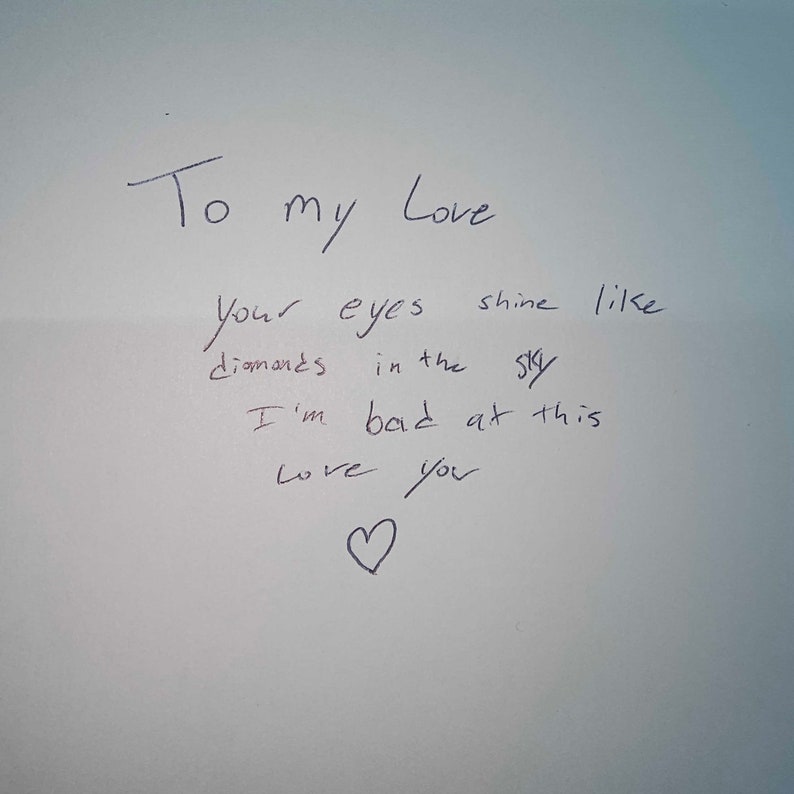 To my Love
your eyes shine like
diamonds in the sky
I'm bad at this
Love you